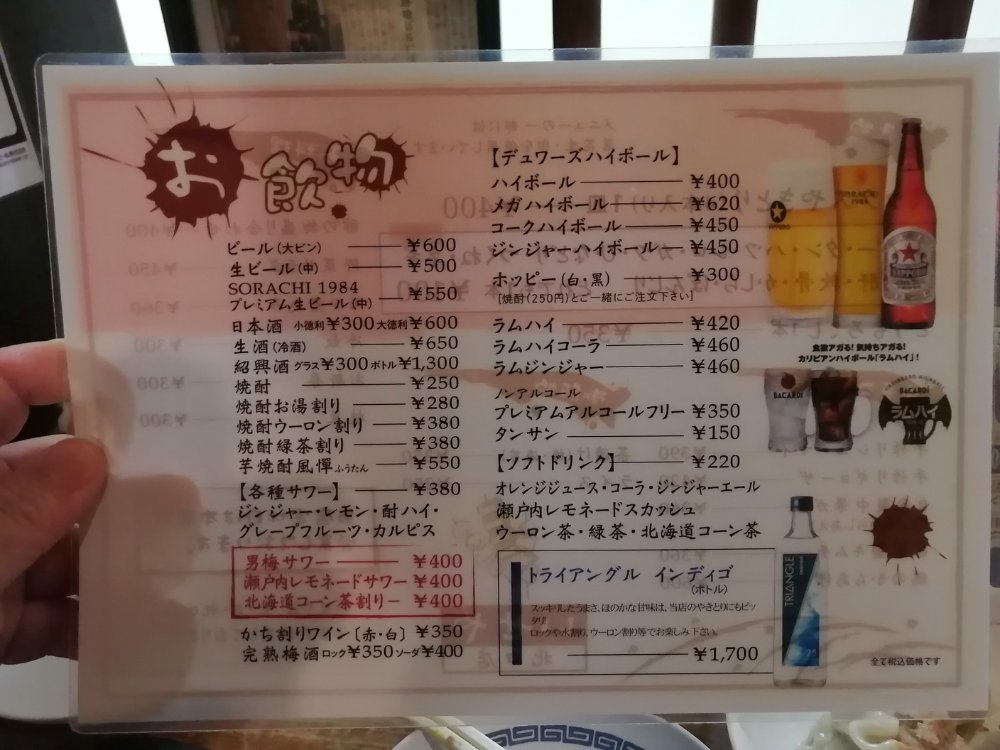 お飲物
ビール(大ビン) ¥600
生ビール(中) ¥500
SORACHI 1984
プレミアム生ビール(中) ¥550
日本酒 小徳利¥300大徳利¥600
生酒(冷酒) ¥650
紹興酒 グラス¥300 ボトル¥1,300
焼酎 ¥250
焼酎お湯割り ¥280
焼酎ウーロン割り ¥380
焼酎緑茶割り ¥380
芋焼酎風憚ふうたん ¥550
【各種サワー】 ¥380
ジンジャー・レモン・酎ハイ・
グレープフルーツ・カルピス
男梅サワー ¥400
瀬戸内レモネードサワー ¥400
北海道コーン茶割り ¥400
かち割りワイン〔赤・白〕 ¥350
完熟梅酒 ロック¥350 ソーダ¥400
【デュワーズハイボール】
ハイボール ¥400
メガハイボール ¥620
コークハイボール ¥450
ジンジャーハイボール ¥450
ホッピー(白・黒) ¥300
[焼酎(250円)とご一緒にご注文下さい]
ラムハイ ¥420
ラムハイコーラ ¥460
ラムジンジャー ¥460
ノンアルコール
プレミアムアルコールフリー ¥350
タンサン ¥150
【ソフトドリンク】 ¥220
オレンジジュース・コーラ・ジンジャーエール
瀬戸内レモネードスカッシュ
ウーロン茶・緑茶・北海道コーン茶
トライアングル インディゴ
(ボトル)
スッキリしたうまさ、ほのかな甘味は、当店のやきとりにもピッ
タリ!
ロックや水割り、ウーロン割り等でお楽しみ下さい。
¥1,700
SORACHI
1984
SAPPORO
食欲アガる!気持ちアガる!
カリビアンハイボール「ラムハイ」!
BACARDI
BACARDI
ラムハイ
TRIANGLE
全て税込価格です